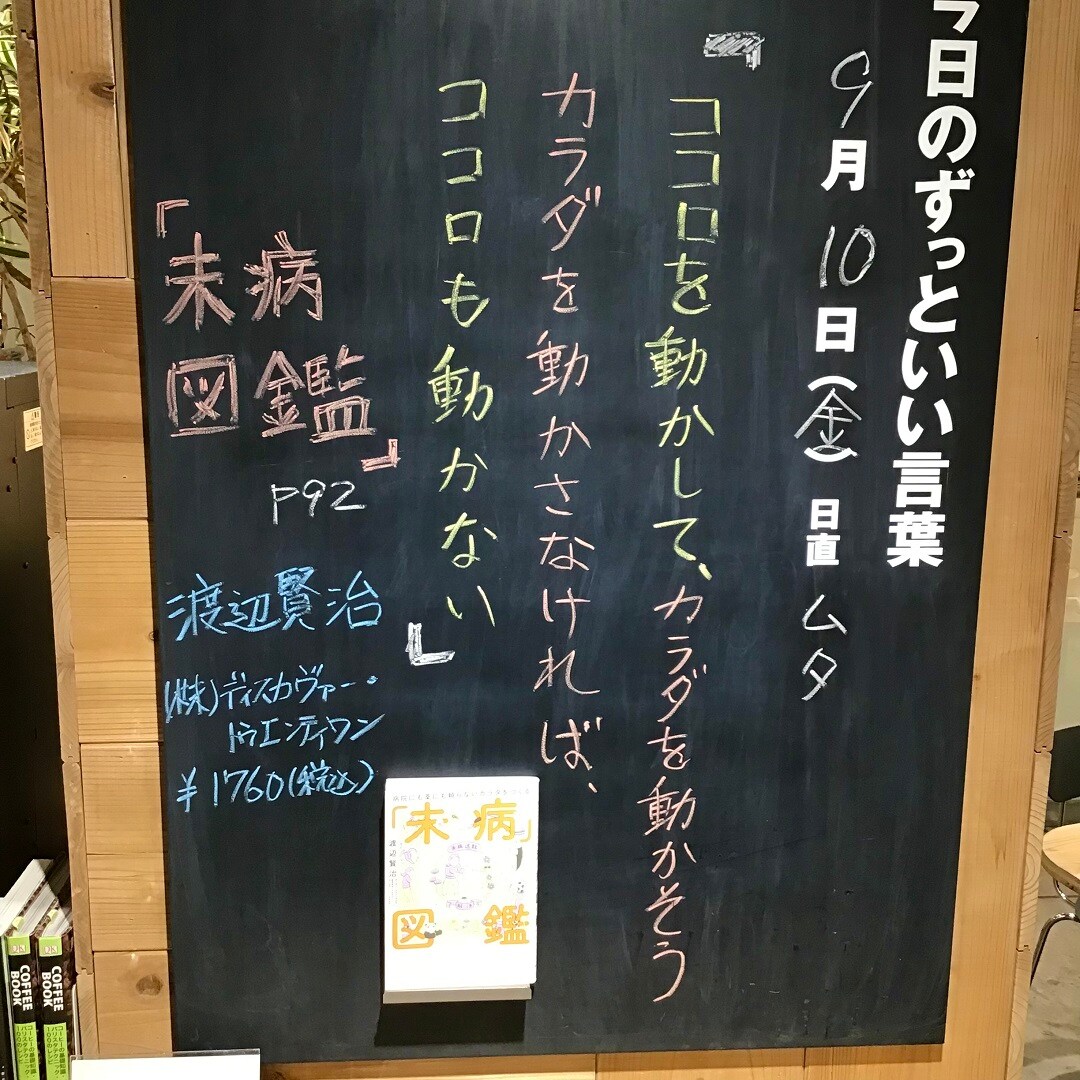 今日のずっといい言葉
9月10日(金) 日直 ムタ
「ココロを動かして、カラダを動かそう
カラダを動かさなければ、
ココロも動かない」
「未病
図鑑」
P92
渡辺賢治
(株)ディスカヴァー・
トゥエンティワン
¥1760(税込)
「未病」
図鑑
渡辺賢治
DK
COFFEE
BOOK
DK
COFFEE
BOOK